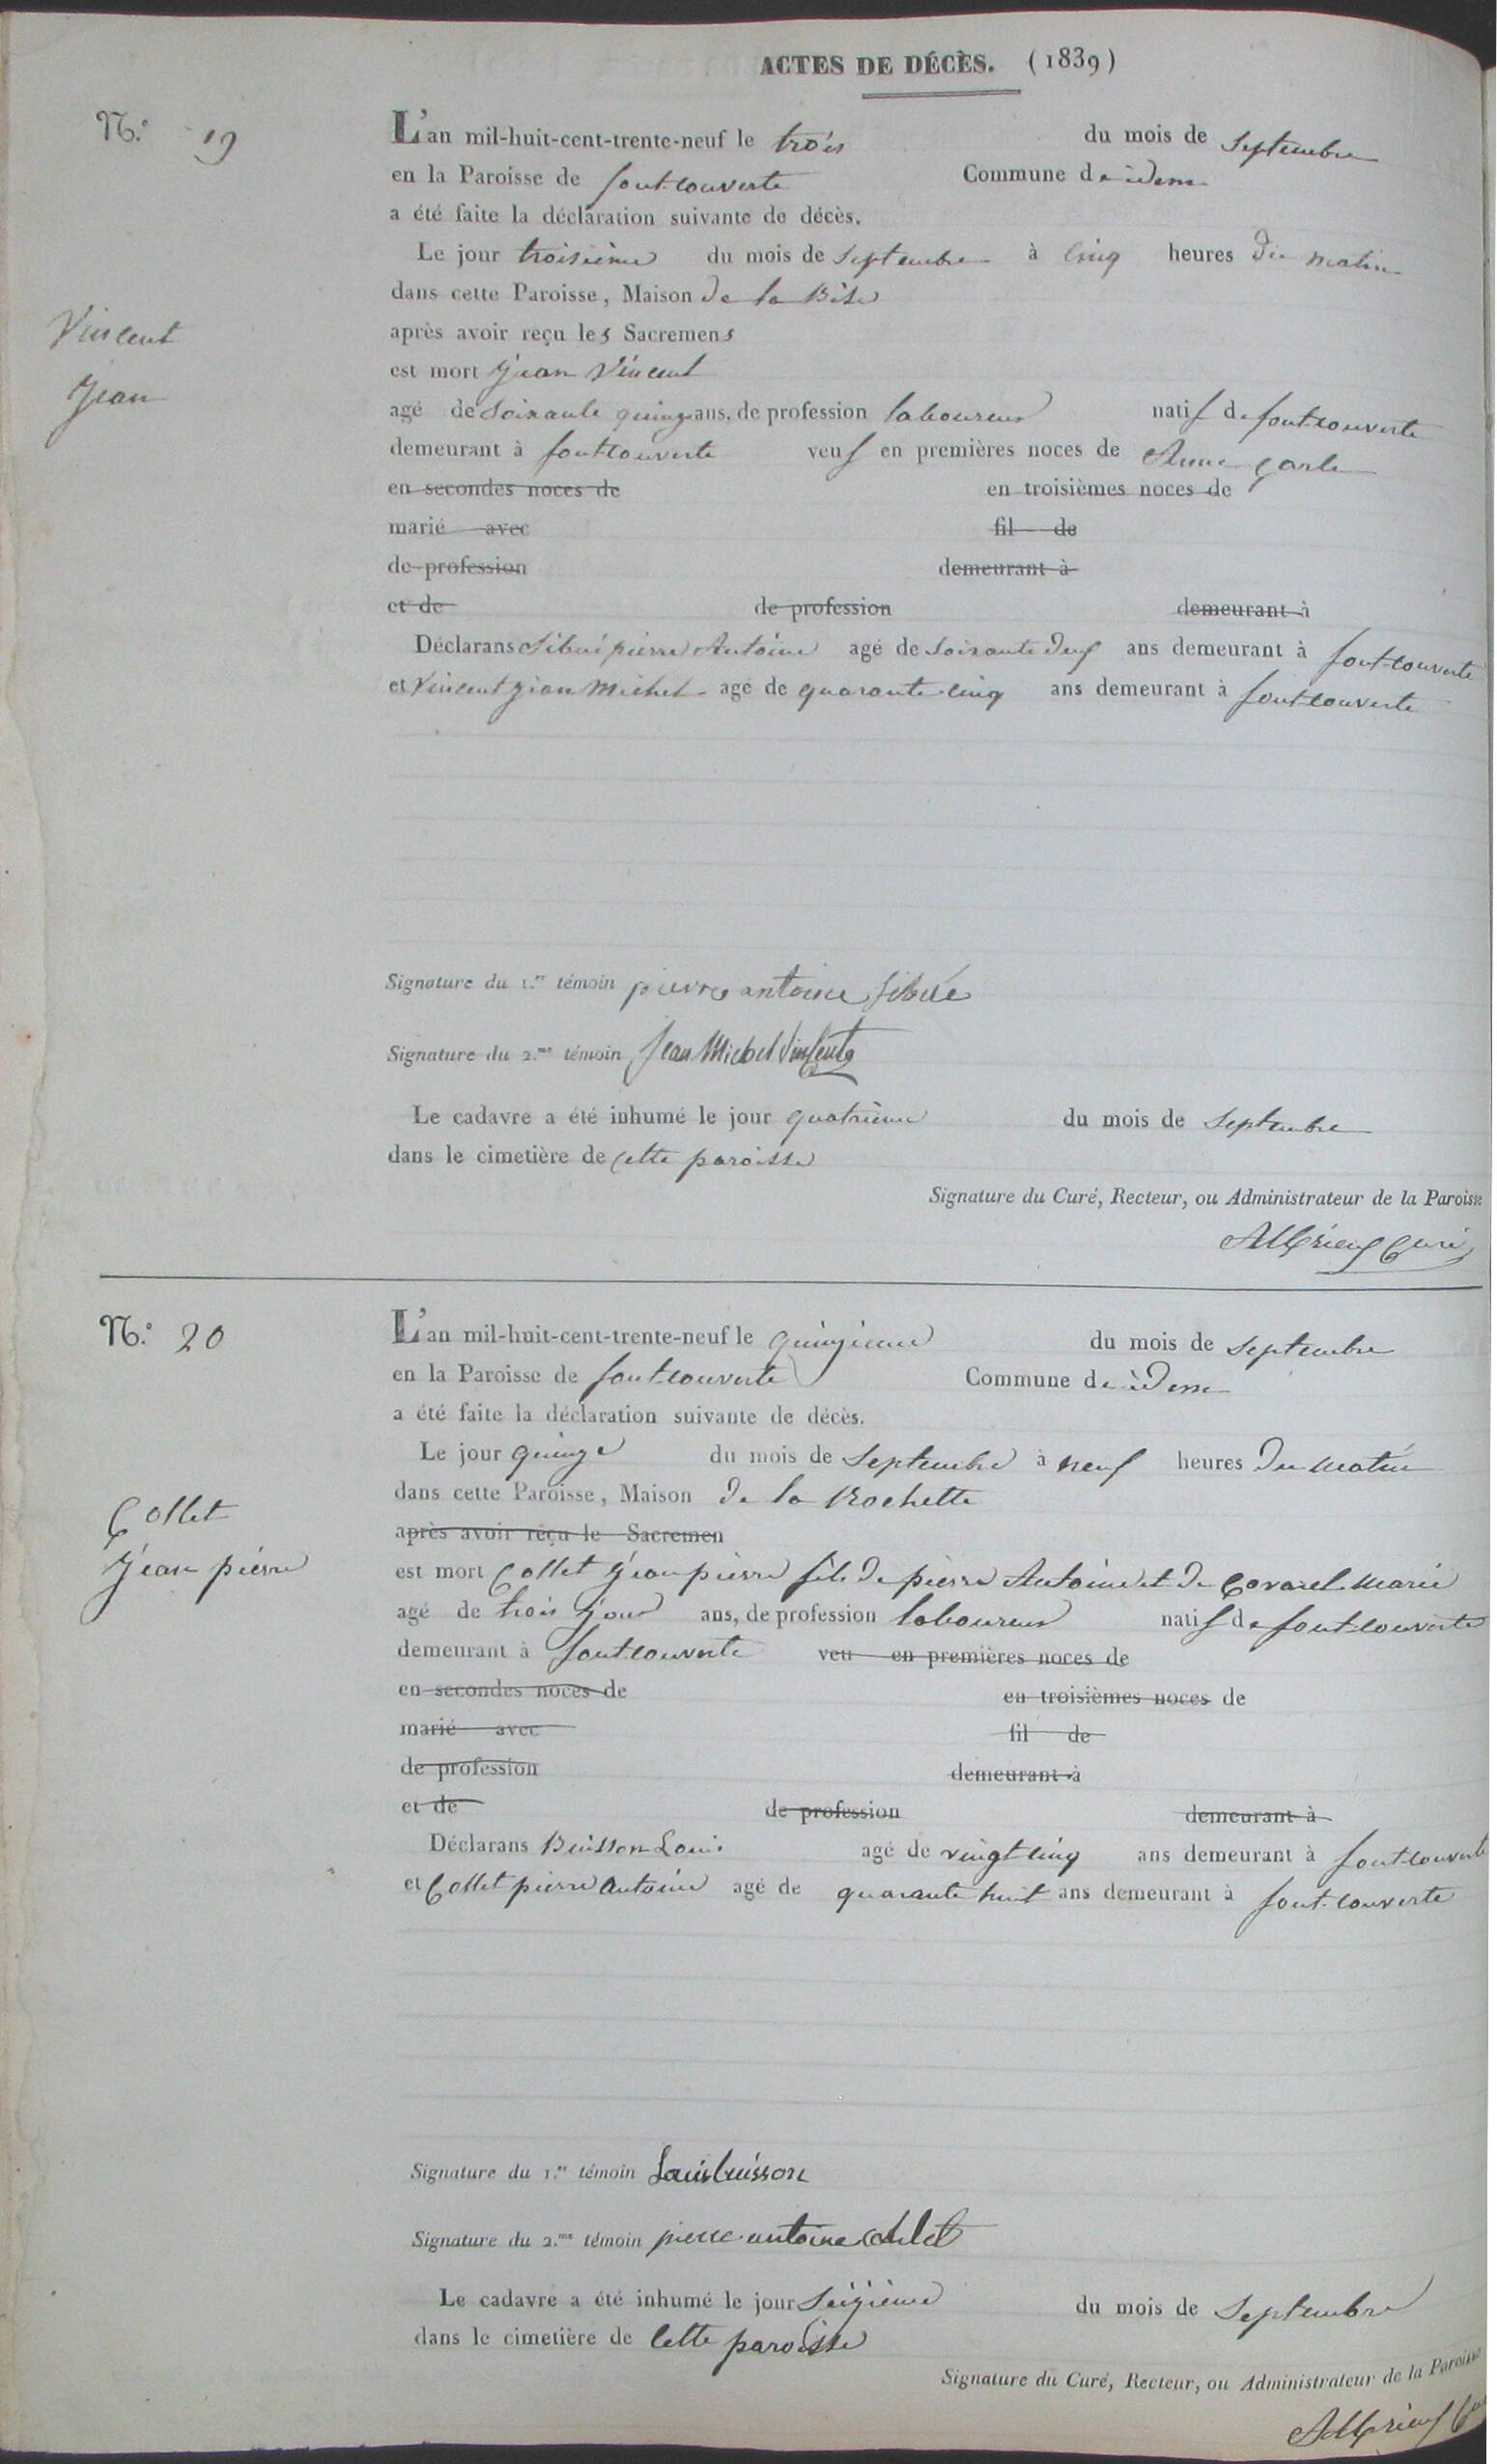 ACTES DE DÉCÈS. (1839)
N.º 19
L'an mil-huit-cent-trente-neuf le trois du mois de Septembre
en la Paroisse de fontcouverte Commune de idem
a été faite la déclaration suivante de décès.
Le jour troisième du mois de Septembre à cinq heures du matin
dans cette Paroisse, Maison de la
après avoir reçu les Sacremens
Vincent
Jean
est mort Jean Vincent
agé de Soixante quinze ans, de profession laboureur natif de fontcouverte
demeurant à fontcouverte veuf en premières noces de Anne
en secondes noces de en troisièmes noces de
marié avec fil de
de profession demeurant à
et de de profession demeurant à
Déclarans Sibué pierre Antoine agé de Soixante deux ans demeurant à fontcouverte
et Vincent Jean Michel agé de quarante cinq ans demeurant à fontcouverte
Signature du 1.er témoin pierre antoine sibué
Signature du 2.me témoin Jean Michel Vinsent
Le cadavre a été inhumé le jour quatrième du mois de Septembre
dans le cimetière de cette paroisse
Signature du Curé, Recteur, ou Administrateur de la Paroisse
Curé
N.º 20
L'an mil-huit-cent-trente-neuf le quinzième du mois de Septembre
en la Paroisse de fontcouverte Commune de idem
a été faite la déclaration suivante de décès.
Le jour quinze du mois de Septembre à neuf heures du matin
dans cette Paroisse, Maison de la Rochette
après avoir reçu le Sacremen
Collet
Jean pierre
est mort Collet Jean pierre fils de pierre Antoine et de Covarel Marie
agé de trois jour ans, de profession laboureur natif de fontcouverte
demeurant à fontcouverte veu en premières noces de
en secondes noces de en troisièmes noces de
marié avec fil de
de profession demeurant à
et de de profession demeurant à
Déclarans Buisson Louis agé de vingt cinq ans demeurant à fontcouverte
et Collet pierre Antoine agé de quarante huit ans demeurant à fontcouverte
Signature du 1.er témoin Louis buisson
Signature du 2.me témoin pierre antoine collet
Le cadavre a été inhumé le jour Seizième du mois de Septembre
dans le cimetière de cette paroisse
Signature du Curé, Recteur, ou Administrateur de la Paroisse